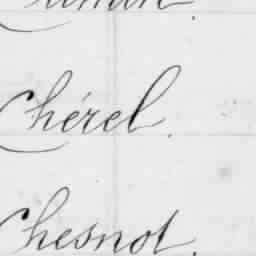 Chérel.
Chesnot.